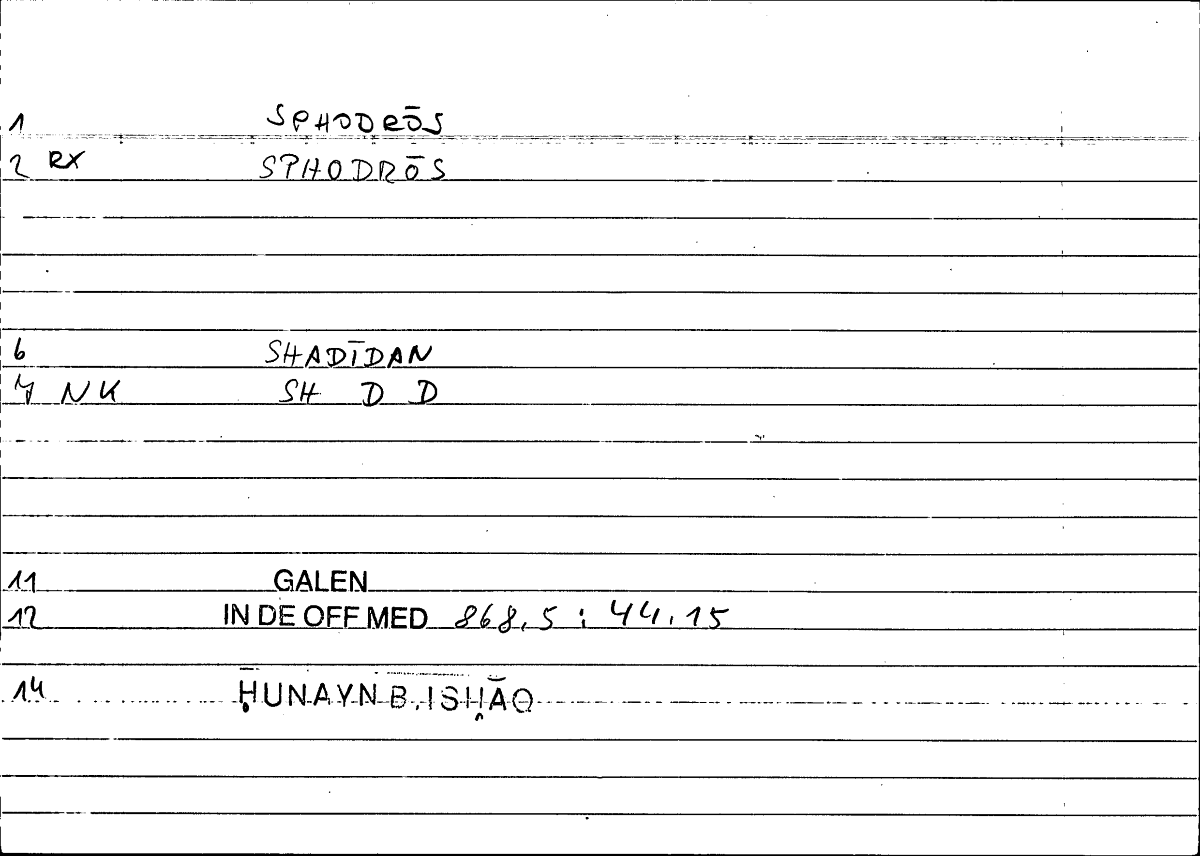 1 SPHODRŌS
2 RX SPHODRŌS
6 SHADĪDAN
7 NK SH D D
11 GALEN
12 IN DE OFF MED 868,5 : 44,15
14 ḤUNAYN B. ISḤĀQ